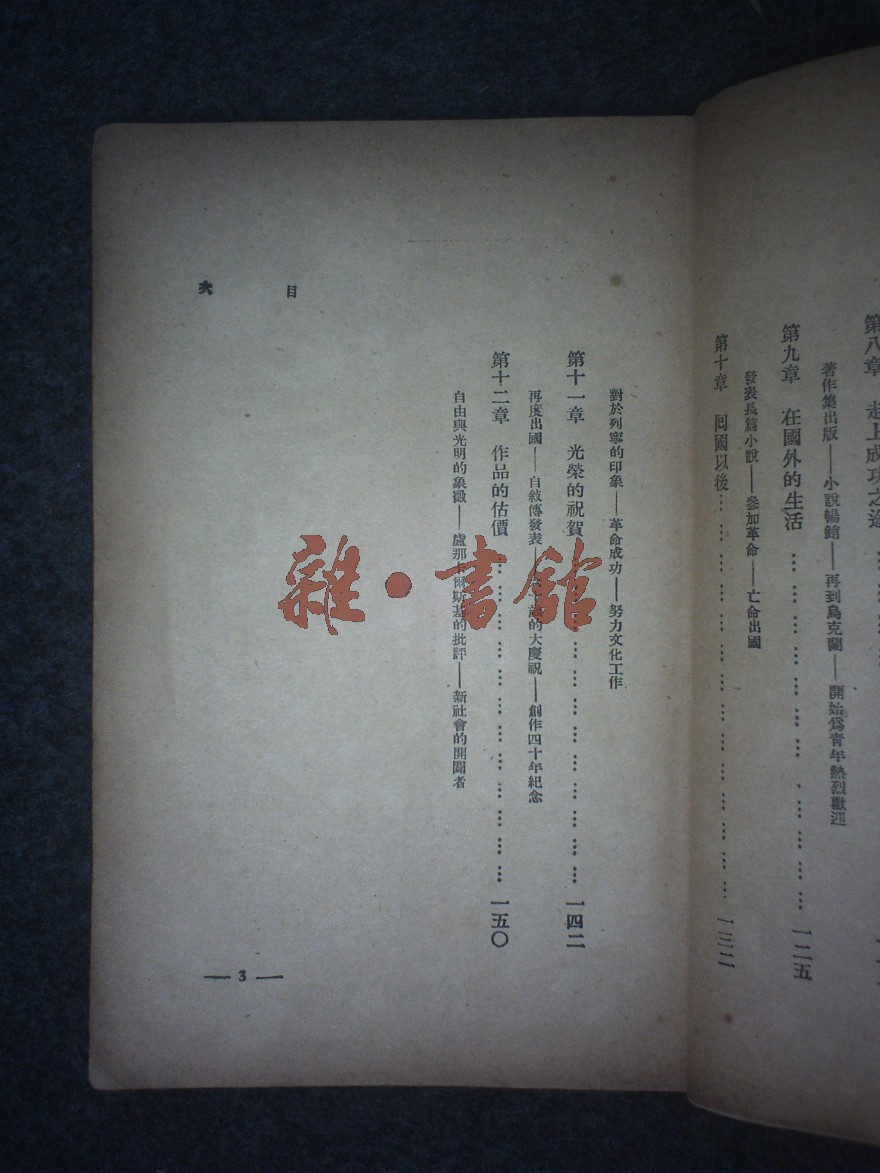 第八章 走上成功之途
著作集出版——小說暢銷——再到烏克蘭——開始爲青年熱烈歡迎
第九章 在國外的生活 一二五
發表長篇小說——參加革命——亡命出國
第十章 回國以後 一三二
對於列寧的印象——革命成功——努力文化工作
第十一章 光榮的祝賀 一四二
再度出國——自敘傳發表——的大慶祝——創作四十年紀念
第十二章 作品的估價 一五〇
自由與光明的象徵——盧那卡爾斯基的批評——新社會的開闢者
目 次
— 3 —
雜・書館